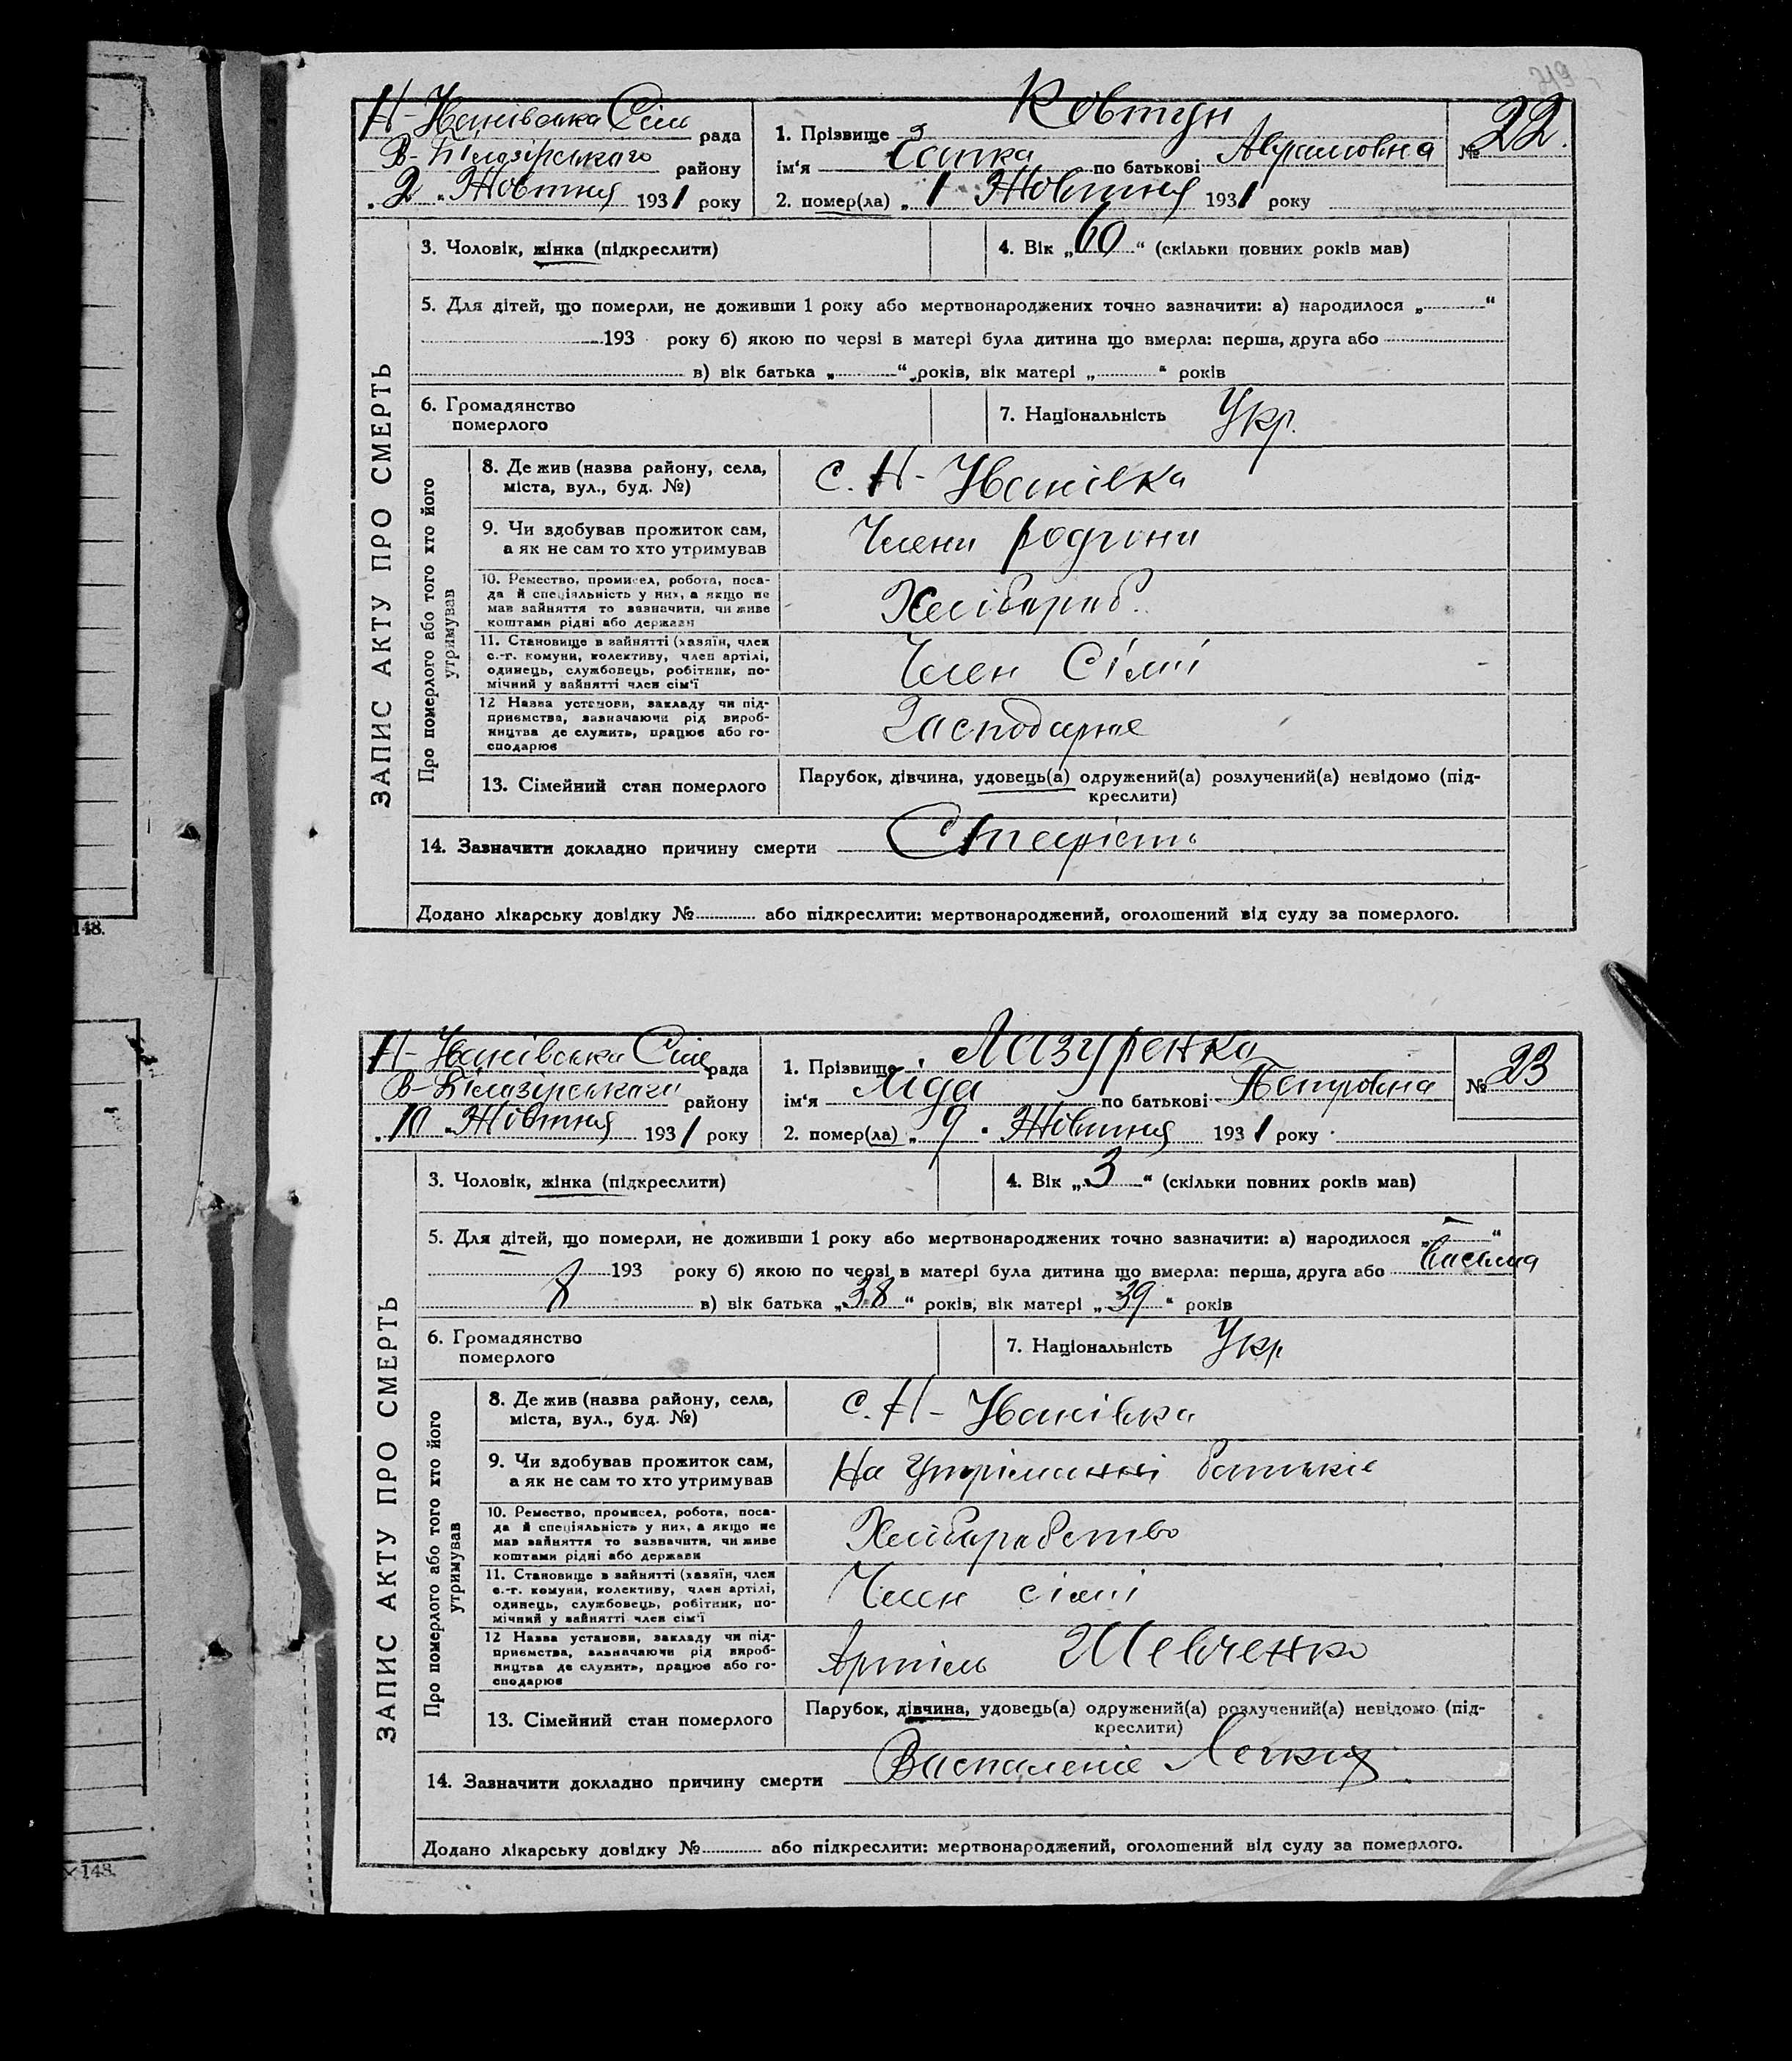 219
Н-Іванівська Сіль рада
В-Білазірського району
„2„ Жовтня 1931 року
1. Прізвище Ковтун
ім'я по батькові Аврамовна
№ 22.
2. помер(ла) „1 Жовтня 1931 року
3. Чоловік, жінка (підкреслити)
4. Вік „60“ (скільки повних років мав)
5. Для дітей, що померли, не доживши 1 року або мертвонароджених точно зазначити: а) народилося „ “
193 року б) якою по черзі в матері була дитина що вмерла: перша, друга або
в) вік батька „ “ років, вік матері „ “ років
6. Громадянство
померлого
7. Національність Укр.
ЗАПИС АКТУ ПРО СМЕРТЬ
Про померлого або того хто його
утримував
8. Де жив (назва району, села,
міста, вул., буд. №)
с. Н-Іванівка
9. Чи здобував прожиток сам,
а як не сам то хто утримував
Члени родини
10. Ремество, промисел, робота, поса-
да й спеціяльність у них, а якщо не
мав зайняття то зазначити, чи живе
коштами рідні або держави
Хлібораб.
11. Становище в зайнятті (хазяїн, член
с.-г. комуни, колективу, член артілі,
одинець, службовець, робітник, по-
мічний у зайнятті член сім'ї
Член Сімї
12 Назва установи, закладу чи під-
приємства, зазначаючи рід вироб-
ництва де служить, працює або го-
сподарює
13. Сімейний стан померлого
Парубок, дівчина, удовець(а) одружений(а) розлучений(а) невідомо (під-
креслити)
14. Зазначити докладно причину смерти Старість
Додано лікарську довідку № або підкреслити: мертвонароджений, оголошений від суду за померлого.
Н-Іванівська Сіль рада
В-Білазірського району
„10„ Жовтня 1931 року
1. Прізвище Лазуренко
ім'я Ліда по батькові Петровна
№ 23
2. помер(ла) „9 Жовтня 1931 року
3. Чоловік, жінка (підкреслити)
4. Вік „3“ (скільки повних років мав)
5. Для дітей, що померли, не доживши 1 року або мертвонароджених точно зазначити: а) народилося „—“
193 року б) якою по черзі в матері була дитина що вмерла: перша, друга або
8 в) вік батька „38“ років, вік матері „39“ років
6. Громадянство
померлого
7. Національність Укр
ЗАПИС АКТУ ПРО СМЕРТЬ
Про померлого або того хто його
утримував
8. Де жив (назва району, села,
міста, вул., буд. №)
с. Н-Іванівка
9. Чи здобував прожиток сам,
а як не сам то хто утримував
На утріманні батьків
10. Ремество, промисел, робота, поса-
да й спеціяльність у них, а якщо не
мав зайняття то зазначити, чи живе
коштами рідні або держави
Хліборабство
11. Становище в зайнятті (хазяїн, член
с.-г. комуни, колективу, член артілі,
одинець, службовець, робітник, по-
мічний у зайнятті член сім'ї
Член сімї
12 Назва установи, закладу чи під-
приємства, зазначаючи рід вироб-
ництва де служить, працює або го-
сподарює
Артіль Шевченко
13. Сімейний стан померлого
Парубок, дівчина, удовець(а) одружений(а) розлучений(а) невідомо (під-
креслити)
14. Зазначити докладно причину смерти Васпаленіе Легких
Додано лікарську довідку № або підкреслити: мертвонароджений, оголошений від суду за померлого.
148.
148.